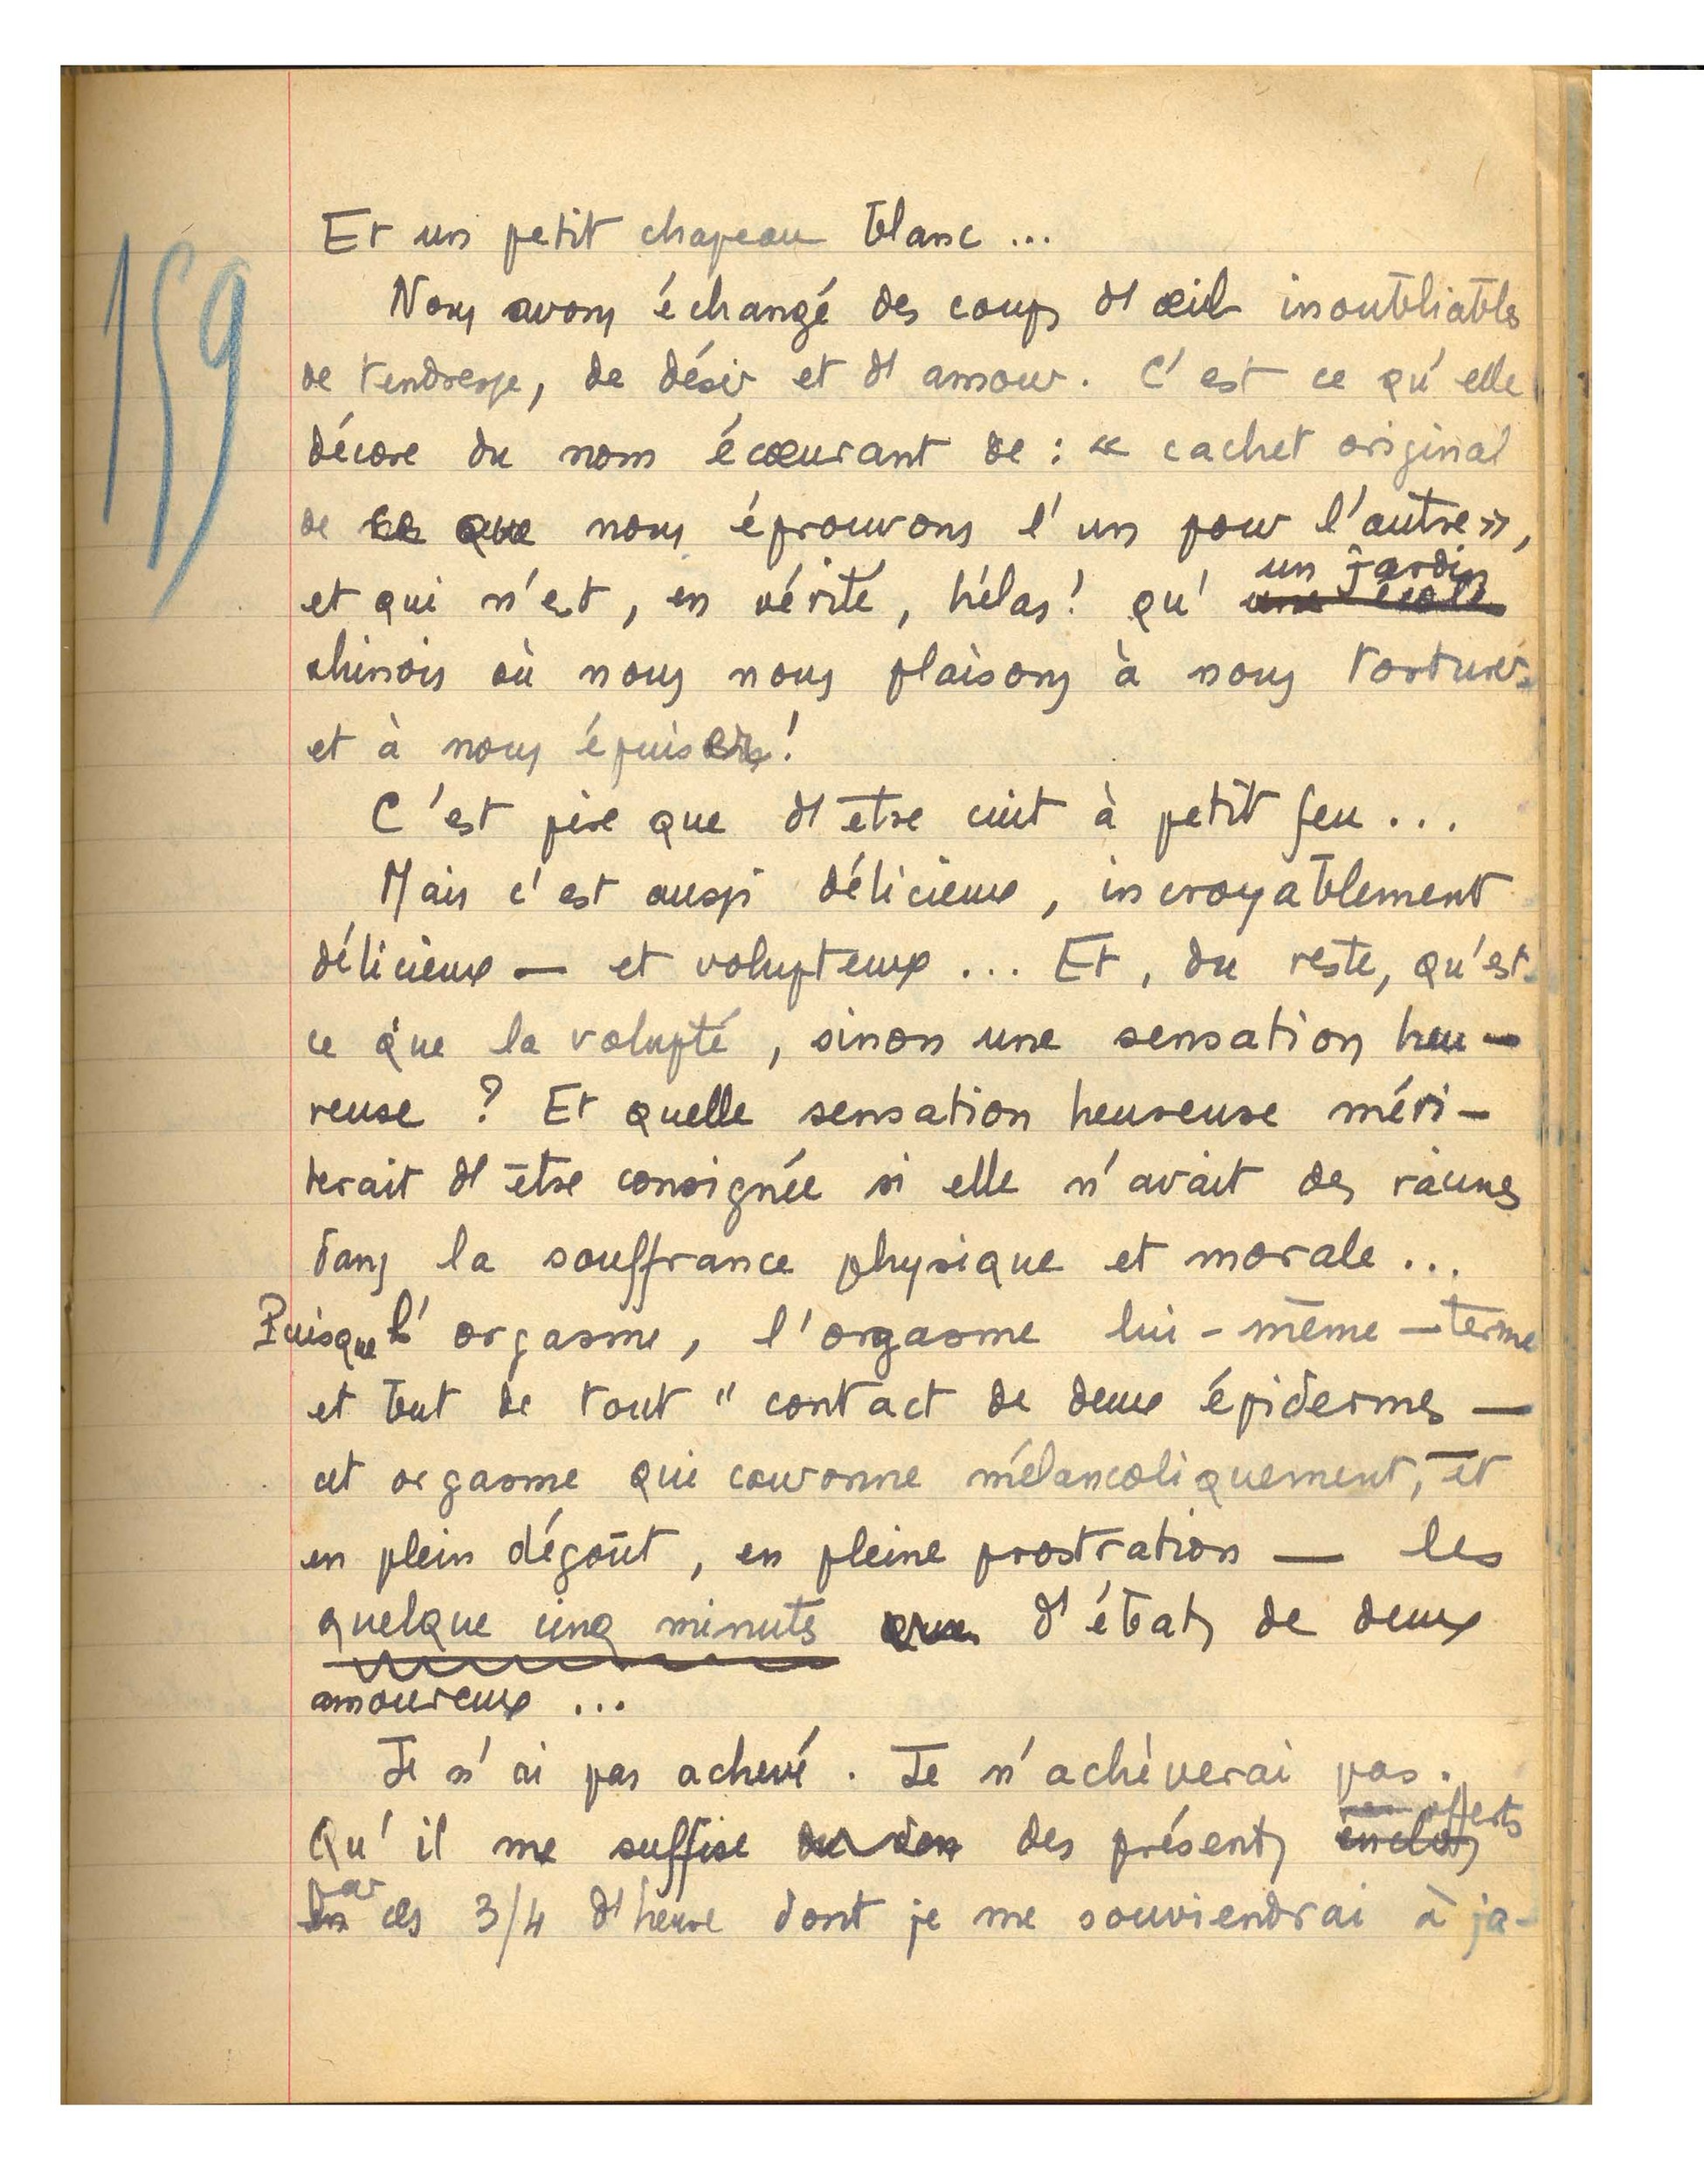 159
Et un petit chapeau blanc ...
Nous avons échangé des coups d'œil inoubliables
de tendresse, de désir et d'amour. C'est ce qu'elle
décore du nom écœurant de : « cachet original
de ce que nous éprouvons l'un pour l'autre »,
un jardin
et qui n'est, en vérité, hélas ! qu'
chinois où nous nous plaisons à nous torturer
et à nous épuiser !
C'est pire que d'être cuit à petit feu ...
Mais c'est aussi délicieux, incroyablement
délicieux — et voluptueux ... Et, du reste, qu'est-
ce que la volupté, sinon une sensation heu-
reuse ? Et quelle sensation heureuse méri-
terait d'être consignée si elle n'avait des racines
dans la souffrance physique et morale ...
Puisque l'orgasme, l'orgasme lui-même — terme
et but de tout " contact de deux épidermes —
cet orgasme qui couronne mélancoliquement, et
en plein dégoût, en pleine prostration — les
quelque cinq minutes d'ébats de deux
amoureux ...
Je n'ai pas achevé. Je n'achèverai pas.
offerts
Qu'il me suffise des présents
par
ces 3/4 d'heure dont je me souviendrai à ja-